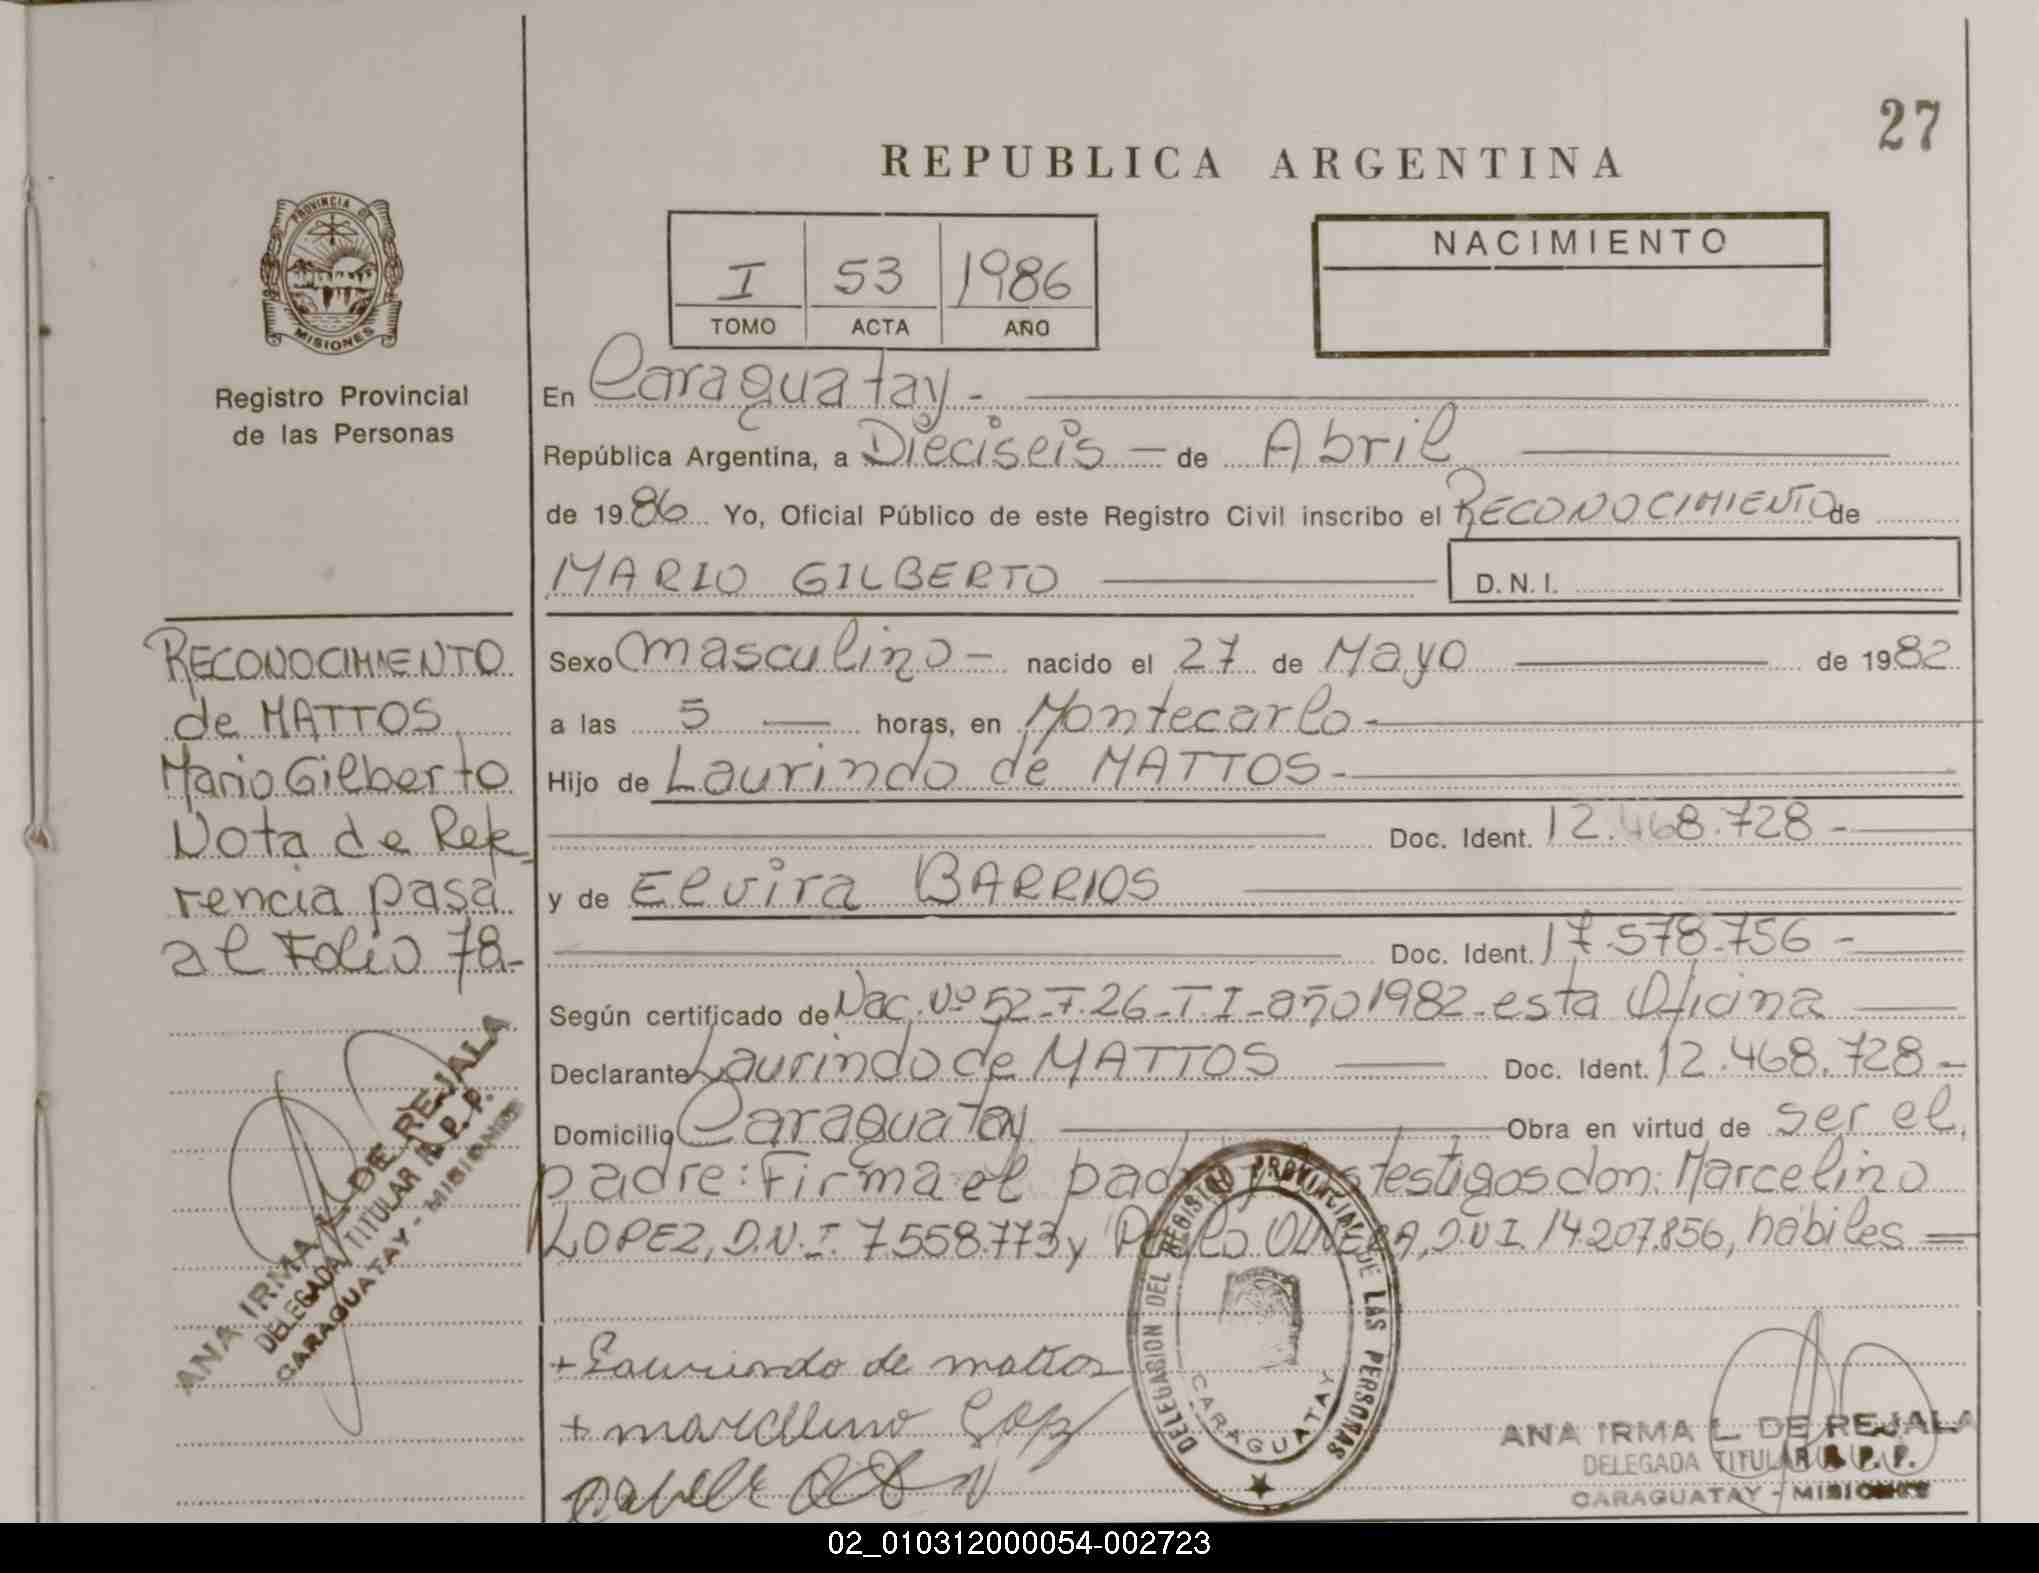 27
REPUBLICA ARGENTINA
PROVINCIA DE
MISIONES
Registro Provincial
de las Personas
I 53 1986
TOMO ACTA AÑO
NACIMIENTO
En Caraguatay -
República Argentina, a Dieciseis - de Abril
de 1986 Yo, Oficial Público de este Registro Civil inscribo el RECONOCIMIENTO de
MARIO GILBERTO
D.N.I.
RECONOCIMIENTO
de MATTOS
Mario Gilberto
Nota de Refe-
rencia pasa
al Folio 78.-
Sexo masculino - nacido el 27 de Mayo de 1982
a las 5 horas, en Montecarlo -
Hijo de Laurindo de MATTOS -
Doc. Ident. 12.468.728 -
y de Elvira BARRIOS
Doc. Ident. 17.578.756 -
Según certificado de Nac. Nº 52-F.26-T.I-año 1982-esta Oficina
Declarante Laurindo de MATTOS Doc. Ident. 12.468.728 -
Domicilio Caraguatay Obra en virtud de ser el
padre: Firma el padre y testigos don: Marcelino
LOPEZ, D.N.I. 7558.773 y D.N.I. 14.207.856, hábiles =
ANA IRMA L. DE REJALA
DELEGADA TITULAR R. P. P.
CARAGUATAY - MISIONES
+ Laurindo de mattos
+ marcelino Lopez
DELEGACION DEL REGISTRO PROVINCIAL DE LAS PERSONAS
CARAGUATAY
ANA IRMA L. DE REJALA
DELEGADA TITULAR R. P. P.
CARAGUATAY - MISIONES
02_010312000054-002723